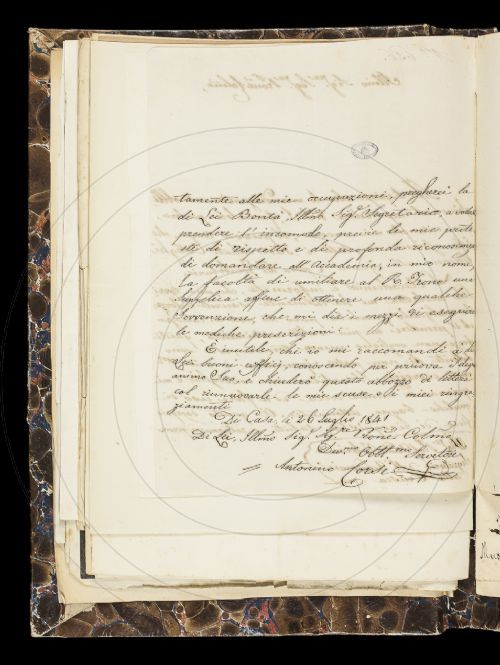 tamente alle mie occupazioni, pregherei la
di Lei Bontà Illmo Sigr Segretario, a voler
prendere l'incomodo, previe le mie prote
ste di rispetto e di profonda riconoscenza
di domandare all'Accademia, in mio nome,
la facoltà di umiliare al R. Trono una
supplica affine di ottenere una qualche
sovvenzione che mi dia i mezzi di eseguire
le mediche prescrizioni.
È inutile, che io mi raccomandi a di
Lei buoni uffici, conoscendo per pruova l'alto
animo Suo, e chiuderò questo abbozzo di lettera
col rinnuovarle le mie scuse. Si miei ringra
ziamenti
Di Casa, a 26 Luglio 1841
Di Lei, Illmo Sig. Sigre Prone Colmo
Devmo Obblmo Servitore
Antonino Corse